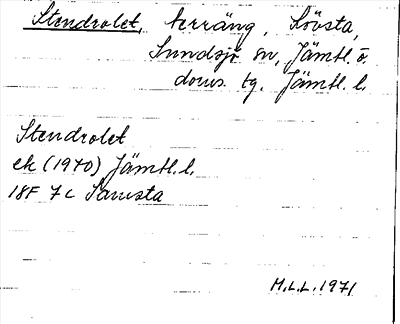 Stendrolet, terräng, Lövsta,
Sundsjö sn, Jämtl. ö.
doms. tg. Jämtl. l.
Stendrolet
ek (1970) Jämtl. l.
18F 7c Samsta
M.L.L. 1971